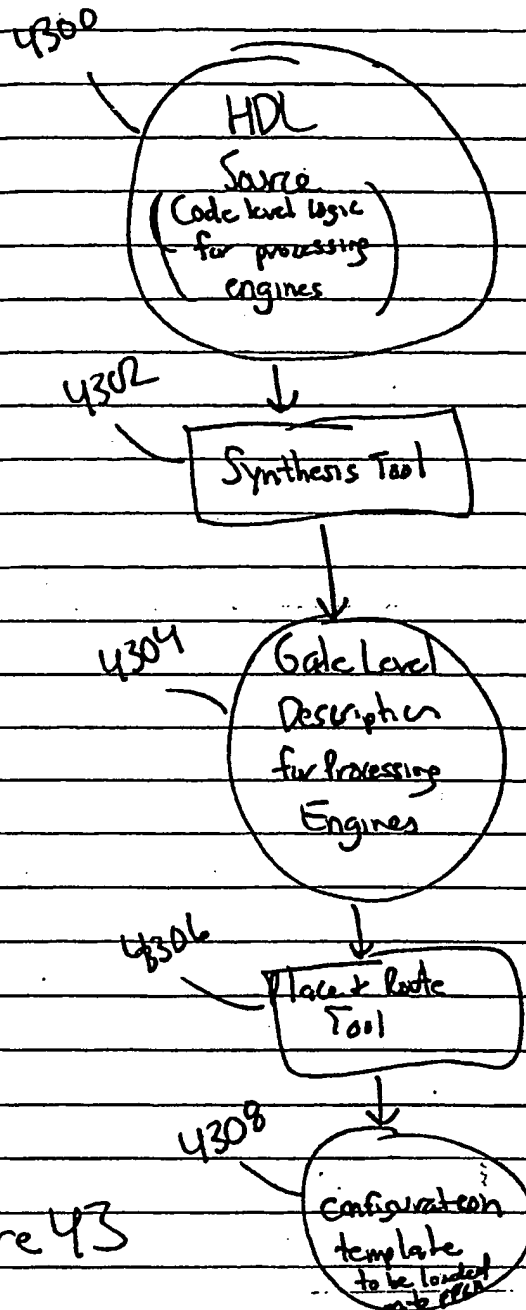 4300
HDL
Source
(Code level logic
for processing
engines)
4302
Synthesis Tool
4304
Gate Level
Description
for Processing
Engines
4306
Place & Route
Tool
4308
configuration
template
to be loaded
onto FPGA
re 43